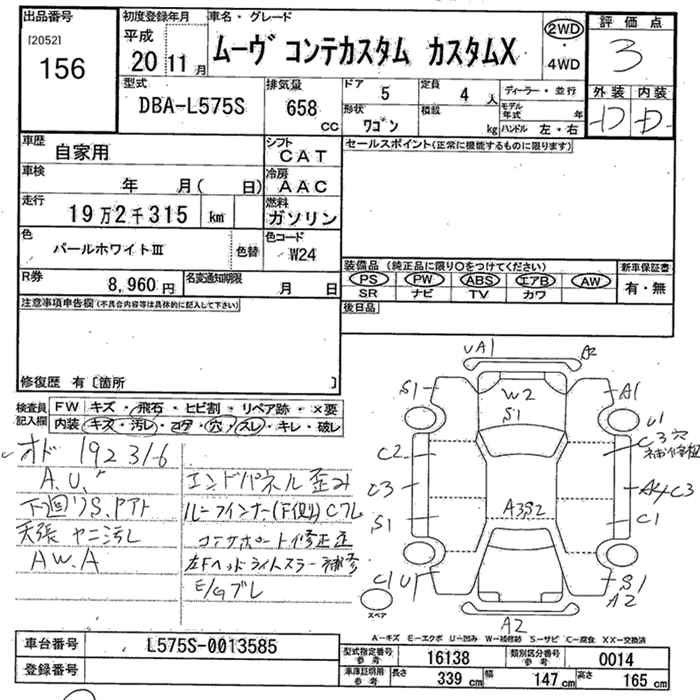 出品番号 初度登録年月 車名・グレード 評価点
[2052] 平成
156 20 11月 ムーヴ コンテカスタム カスタムX 2WD・4WD 3
型式 排気量 ドア 5 定員 4人 ディーラー・並行 外装 内装
DBA-L575S 658cc 形状 ワゴン 積載 kg モデル年式 年 D D
ハンドル 左・右
車歴 自家用 シフト CAT セールスポイント(正常に機能するものに限ります)
車検 年 月( 日) 冷房 AAC
走行 19万2千315 km 燃料 ガソリン
色 パールホワイトⅢ 色替 色コード W24
装備品 (純正品に限り○をつけてください) 新車保証書
R券 8,960円 名変通知期限 月 日 PS PW ABS エアB AW 有・無
SR ナビ TV カワ
注意事項申告欄(不具合内容等は具体的に記入して下さい) 後日品
修復歴 有〔箇所 〕
検査員記入欄 FW キズ・飛石・ヒビ割・リペア跡・×要
内装 キズ・汚レ・コゲ・穴・スレ・キレ・破レ
オド 192316
A.U.
下回りS.Pアト
天張 ヤニ汚レ
AW.A
エンドパネル歪み
コアサポート修正歪
左Fヘッドライトスラー補修
E/Gブレ
UA1 A2
S1 W2 A1
S1 U1
C2 C3穴
C3 A3S2 C3
S1 C1
C1 U1 S1
A2 A2
スペア
A-キズ E-エクボ U-凹み W-補修跡 S-サビ C-腐食 XX-交換済
車台番号 L575S-0013585 型式指定番号 参考 16138 類別区分番号 参考 0014
登録番号 車庫証明用 参考 長さ 339cm 幅 147cm 高さ 165cm